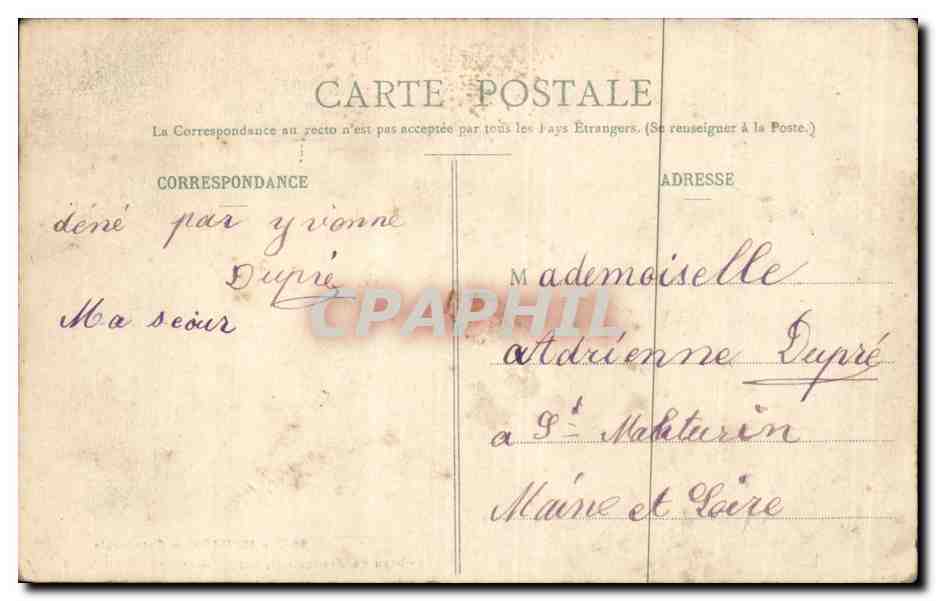 CARTE POSTALE
La Correspondance au recto n'est pas acceptée par tous les Pays Étrangers. (Se renseigner à la Poste.)
CORRESPONDANCE
déné par yvonne
Dupré
Ma seour
ADRESSE
Mademoiselle
aAdrienne Dupré
a St Mahturin
Maine et Loire
CPAPHIL